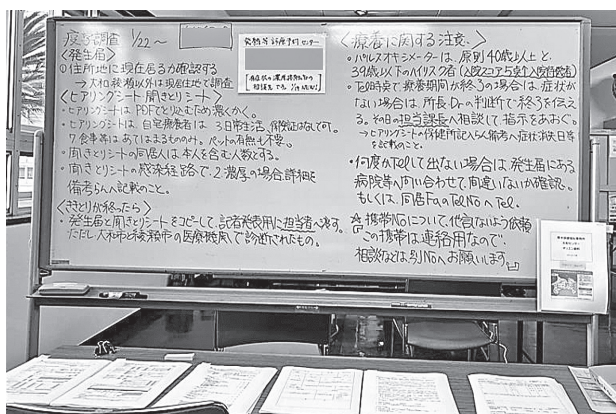 疫学調査 1/22〜
<発生届>
◎住所地に現住居るか確認する
→大和、綾瀬以外は現住地で調査
<ヒアリングシート・聞きとりシート>
・ヒアリングシートは、PDFでとりこむため濃くかく。
・ヒアリングシートは、自宅療養者は、3日常生活、保険証はなしで可。
7.食事等はあてはまるもののみ。ペットの有無も不要。
・聞きとりシートの同居人は本人を含む人数とする。
・聞きとりシートの感染経路で、2濃厚の場合、詳細を
備考らんへ記載のこと。
<ききとりが終わったら>
・発生届と聞きとりシートをコピーして、記者発表用に担当者へ渡す。
ただし大和市と綾瀬市の医療機関で診断されたもの。
発熱等診療予約センター
<療養に関する注意>
・パルスオキシメーターは、原則40歳以上と、
39歳以下のハイリスク者
・Tel時点で療養期間が終了の場合は、症状が
ない場合は、所長・Drの判断で終了を伝え
る。その日の担当課長へ相談して指示をあおぐ。
→ヒアリングシートの保健所記入らん備考へ症状消失日等
を記載のこと。
・何度かTelして出ない場合は発生届にある
病院等へ問い合わせて間違いないか確認。
もしくは、同居FaのTelNoへTel。
☆携帯Noについて、他言ないよう依頼
「この携帯は連絡用なので、
相談などは別Noへお願いします。」